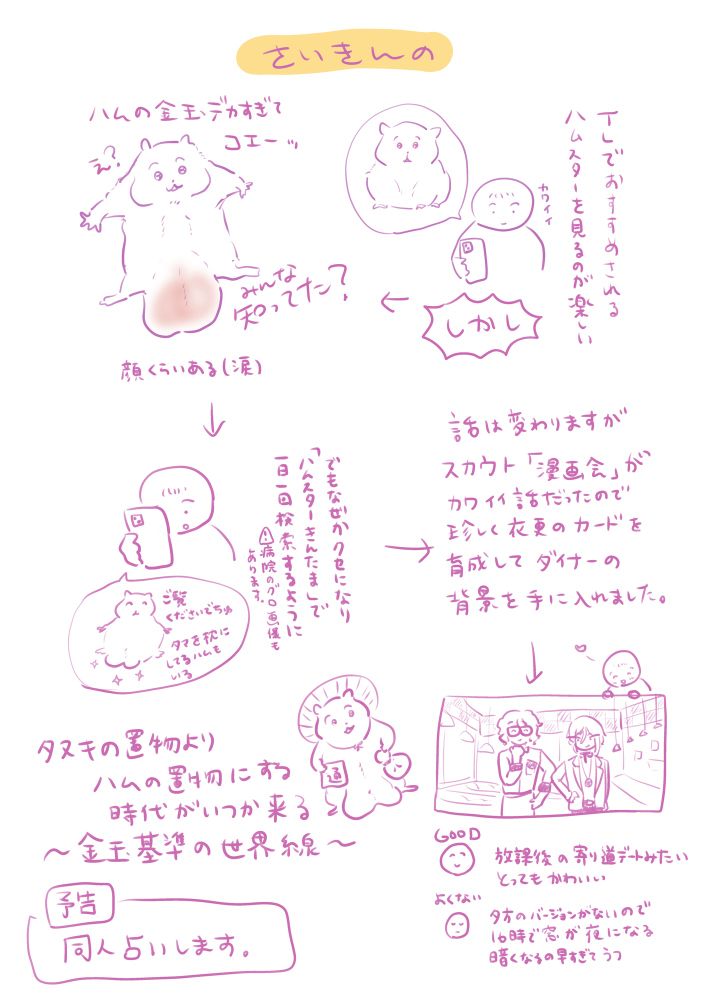 さいきんの
TLでおすすめされる
ハムスターを見るのが楽しい
カワイイ
しかし
ハムの金玉デカすぎて
コエーッ
え?
みんな
知ってた?
顔くらいある(涙)
でもなぜかクセになり
「ハムスターきんたま」で
一日一回検索するように
⚠病院のグロ画像も
あります。
ご覧
くださいでちゅ
タマを枕に
してるハムも
いる
話は変わりますが
スカウト「漫画会」が
カワイイ話だったので
珍しく衣更のカードを
育成してダイナーの
背景を手に入れました。
GOOD
放課後の寄り道デートみたい
とってもかわいい
よくない
夕方のバージョンがないので
16時で窓が夜になる
暗くなるの早すぎてうつ
タヌキの置物より
ハムの置物にする
時代がいつか来る
〜金玉基準の世界線〜
通
予告
同人占いします。